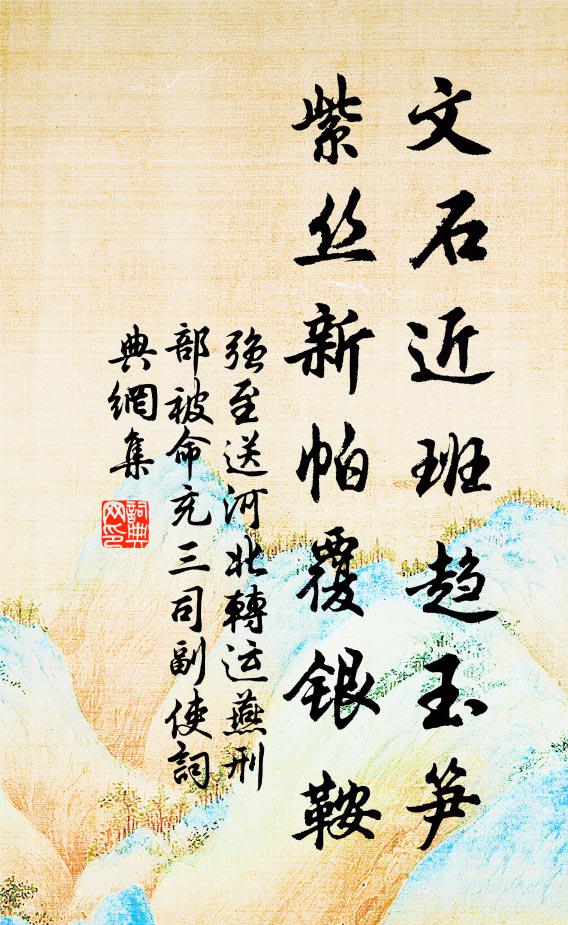 文石近班趋玉笋
紫丝新帕覆银鞍
强至送河北轉运燕刑
部被命充三司副使詞
典網集
詞典网印